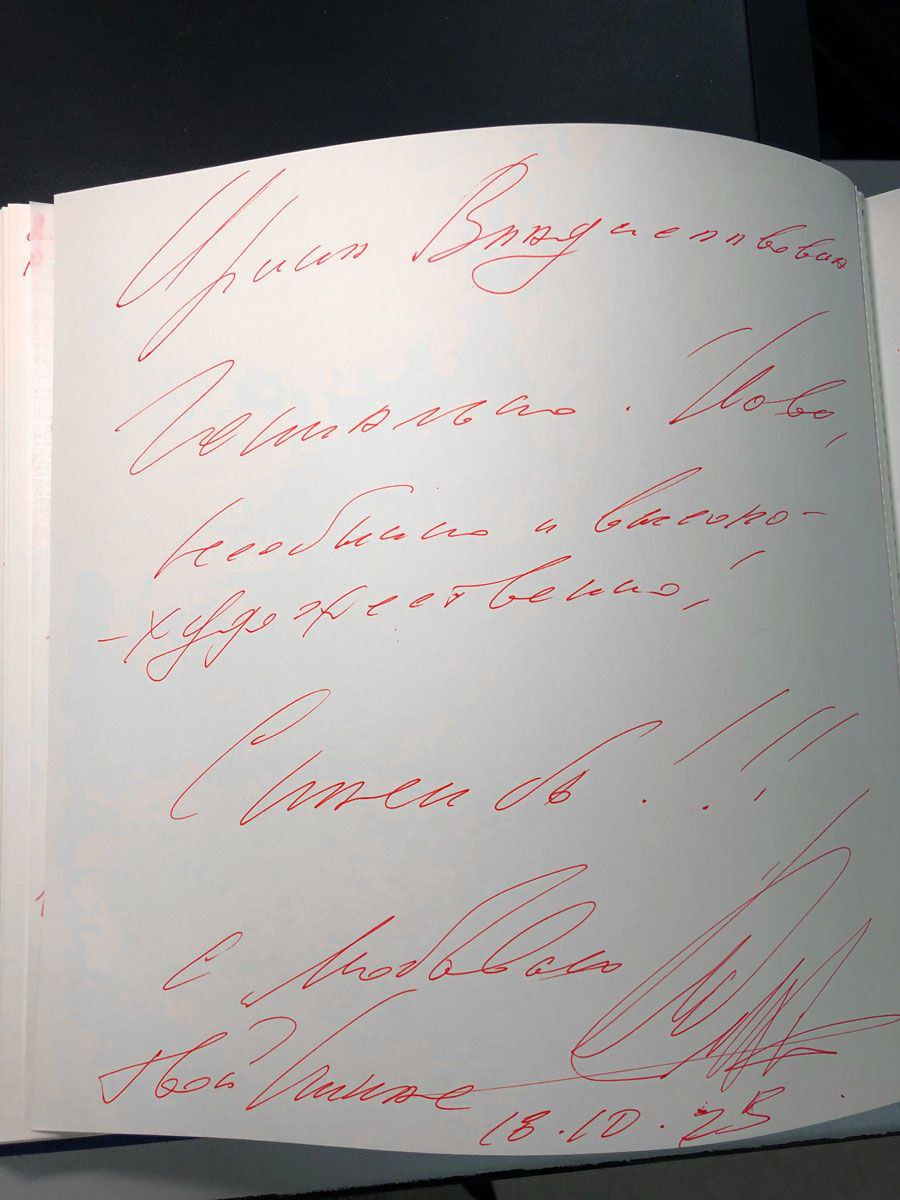 Ирина Владиславовна
Гениально. Ново,
необычно и высоко-
-художественно!
Спасибо!!!
с любовью
твой
18.10.25.